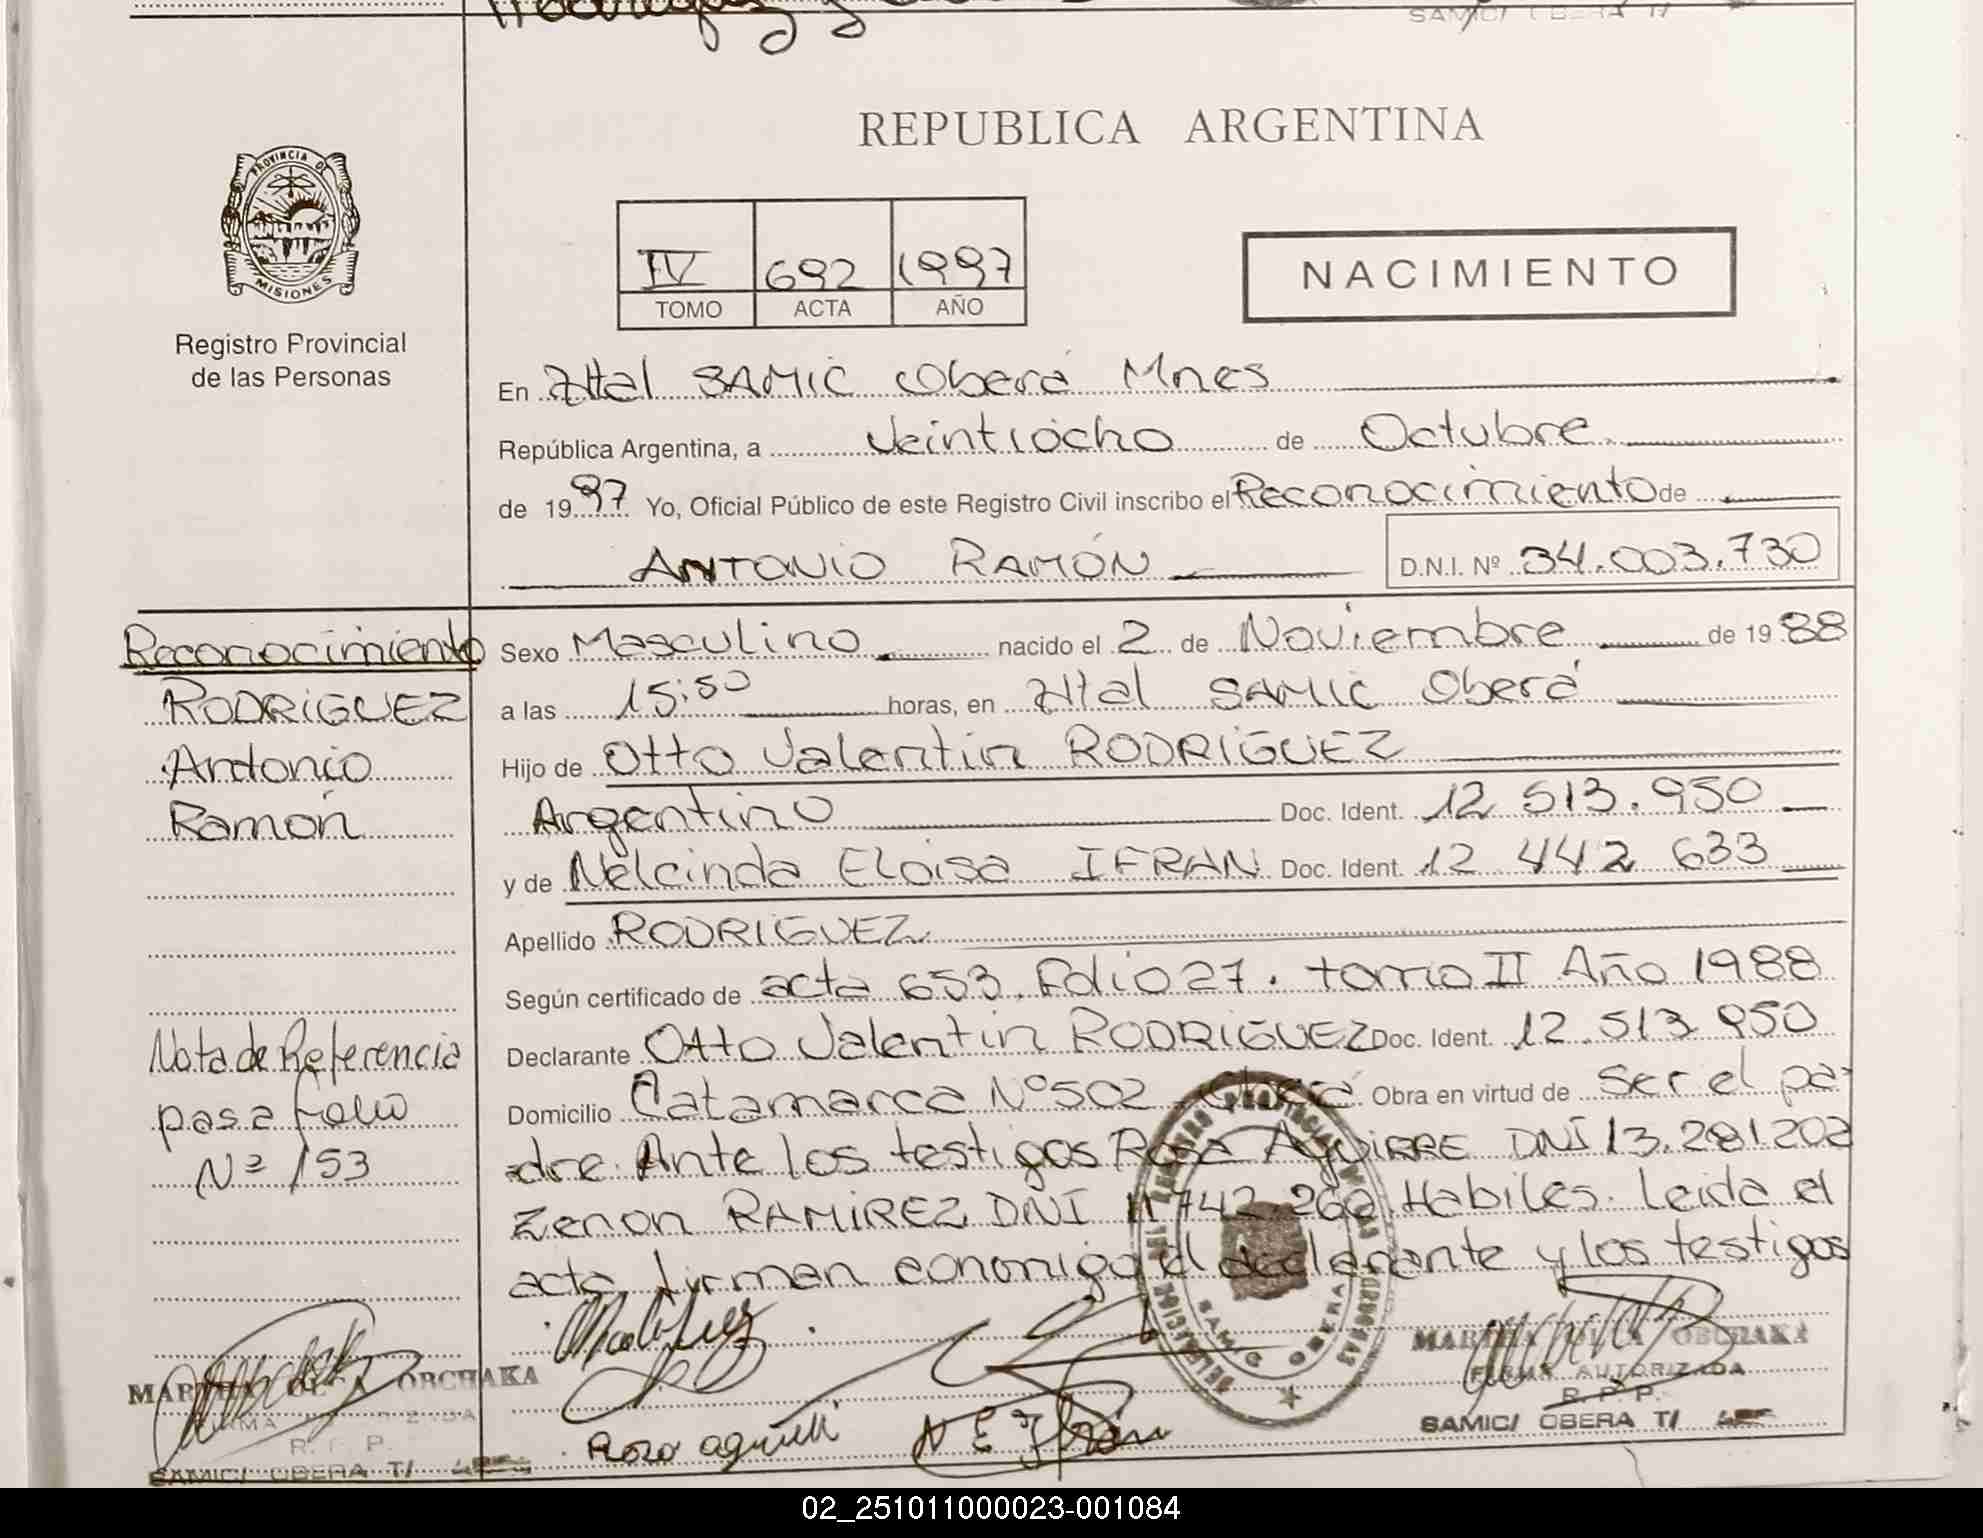 Rodriguez
SAMIC/ OBERA T/
PROVINCIA DE
MISIONES
Registro Provincial
de las Personas
REPUBLICA ARGENTINA
IV 692 1997
TOMO ACTA AÑO
NACIMIENTO
En Httal SAMIC Oberá Mnes
República Argentina, a Veintiocho de Octubre
de 1997 Yo, Oficial Público de este Registro Civil inscribo el Reconocimiento de
ANTONIO RAMÓN D.N.I. Nº 34.003.730
Reconocimiento
RODRIGUEZ
Antonio
Ramón
Nota de Referencia
pasa folio
Nº 153
Sexo Masculino nacido el 2 de Noviembre de 1988
a las 15:50 horas, en Httal SAMIC Oberá
Hijo de Otto Valentin RODRIGUEZ
Argentino Doc. Ident. 12 513.950
y de Nelcinda Eloisa IFRAN Doc. Ident. 12 442 633
Apellido RODRIGUEZ
Según certificado de acta 653. Folio 27. tomo II Año 1988
Declarante Otto Valentin RODRIGUEZ Doc. Ident. 12.513.950
Domicilio Catamarca Nº 502 Oberá Obra en virtud de Ser el pa-
dre. Ante los testigos Rosa AguiRRE DNI 13.281202
Zenon RAMIREZ DNI 11742 260 Habiles. Leida el
acta firman conmigo el declarante y los testigos
MARTHA OLGA OBCHAKA
FIRMA AUTORIZADA
R. P. P.
SAMIC/ OBERA T/
Rosa aguirre
N E Ifran
SAMIC OBERA
MARTHA OLGA OBCHAKA
FIRMA AUTORIZADA
R. P. P.
SAMIC/ OBERA T/
02_251011000023-001084